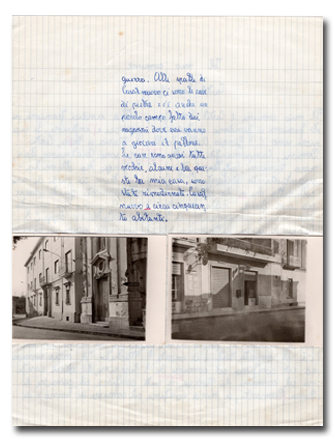 guerra. Alle spalle di
Casalnuovo ci sono le case
di pietra e c'è anche un
piccolo campo fatto dai
ragazzi dove noi andiamo
a giocare il pallone.
Le case sono quasi tutte
vecchie, alcune e tra que-
ste la mia casa, sono
state rimodernate. Casal-
nuovo e circa cinquecen
ti abitanti.